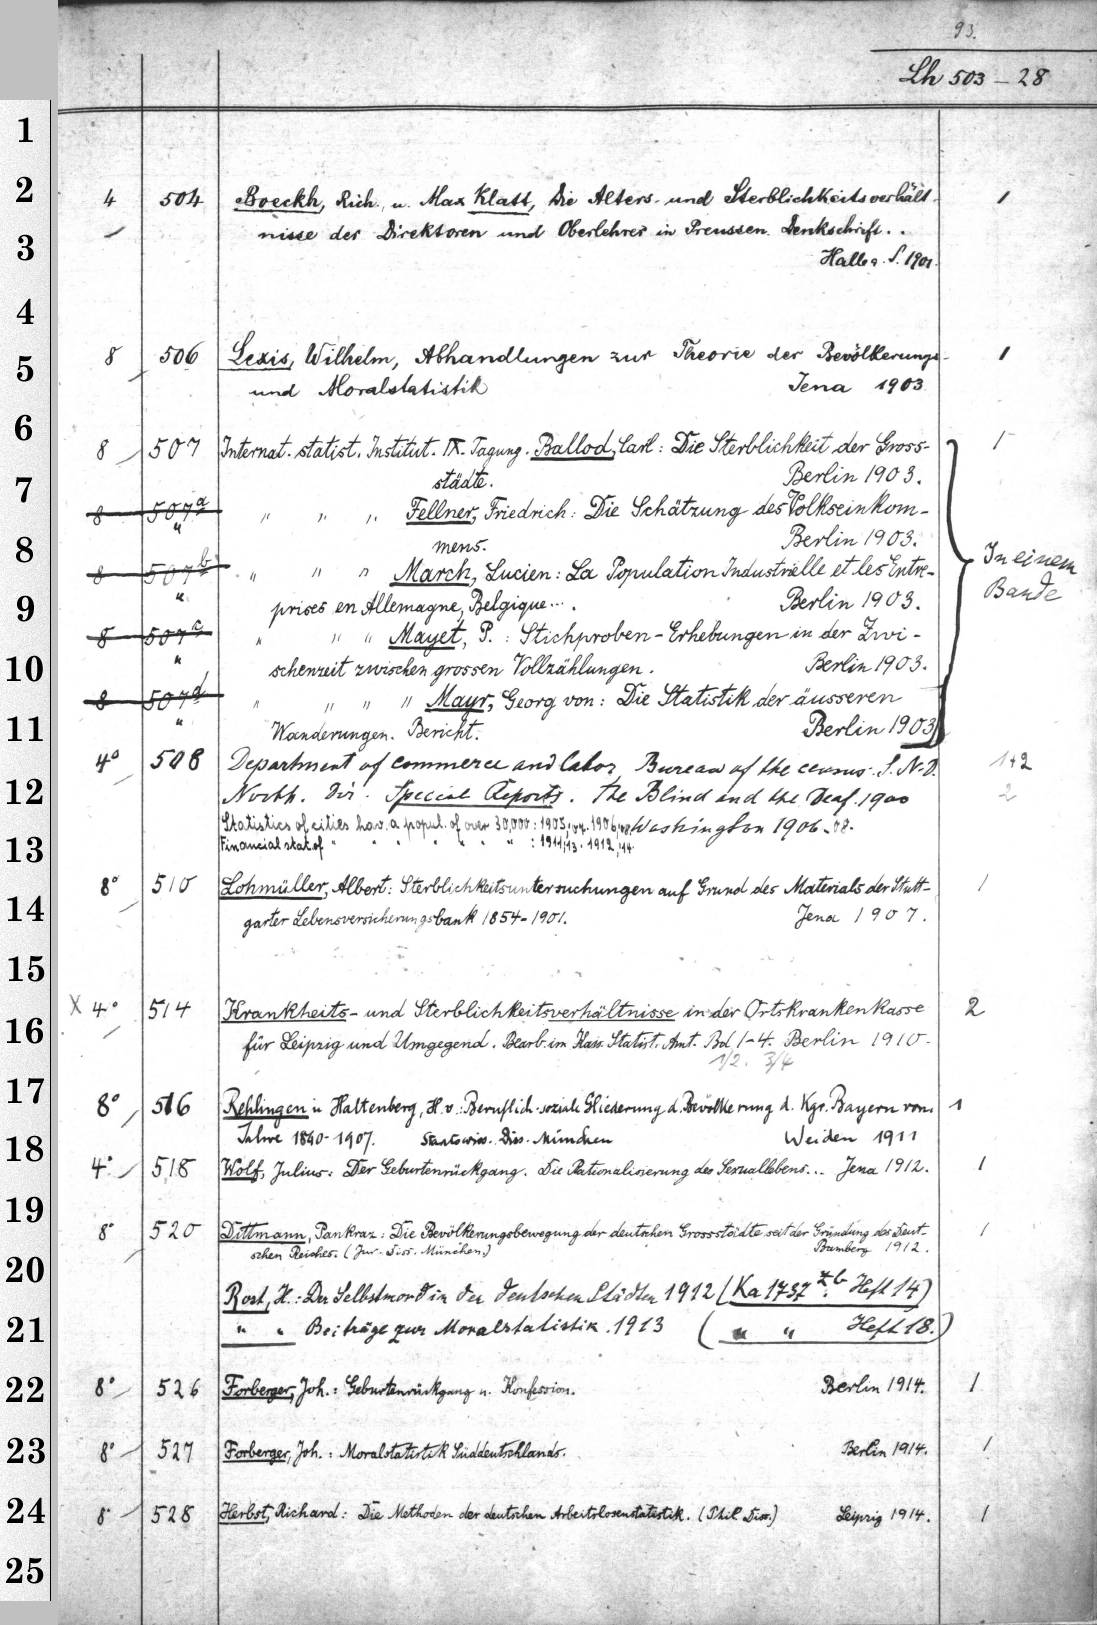 93.
Lh 503 – 28
1
2
3
4
5
6
7
8
9
10
11
12
13
14
15
16
17
18
19
20
21
22
23
24
25
4 504 Boeckh, Rich. u. Max Klatt, Die Alters- und Sterblichkeitsverhält- 1
nisse der Direktoren und Oberlehrer in Preussen. Denkschrift..
Halle a. S. 1901.
8 506 Lexis, Wilhelm, Abhandlungen zur Theorie der Bevölkerungs- 1
und Moralstatistik Jena 1903
8 507 Internat. statist. Institut. IX. Tagung. Ballod, Carl: Die Sterblichkeit der Gross- 1
städte. Berlin 1903.
8 507a " " " Fellner, Friedrich: Die Schätzung des Volkseinkom-
" mens. Berlin 1903.
8 507b " " " March, Lucien: La Population Industrielle et les Entre-
" prises en Allemagne, Belgique... . Berlin 1903.
In einem
Bande
8 507c " " " Mayet, P.: Stichproben-Erhebungen in der Zwi-
" schenzeit zwischen grossen Vollzählungen. Berlin 1903.
8 507d " " " " Mayr, Georg von: Die Statistik der äusseren
" Wanderungen. Bericht. Berlin 1903
4° 508 Department of commerce and labor, Bureau of the census. S. N. D. 1+2
North. Dir. Special Reports. The Blind and the Deaf. 1900 2
Statistics of cities hav. a popul. of over 30,000: 1905, 07. 1906, 08 Washington 1906-08.
Financial stat. of " " " " " " " : 1911, 13. 1912, 14.
8° 510 Lohmüller, Albert: Sterblichkeitsuntersuchungen auf Grund des Materials der Stutt- 1
garter Lebensversicherungsbank 1854-1901. Jena 1907.
X 4° 514 Krankheits- und Sterblichkeitsverhältnisse in der Ortskrankenkasse 2
für Leipzig und Umgegend. Bearb. im Kais. Statist. Amt. Bd 1-4. Berlin 1910.
1/2. 3/4
8° 516 Rehlingen u Haltenberg, H. v.: Beruflich-soziale Gliederung d. Bevölkerung d. Kgr. Bayern vom 1
Jahre 1840-1907. Staatswiss. Diss. München Weiden 1911
4° 518 Wolf, Julius: Der Geburtenrückgang. Die Rationalisierung des Sexuallebens... Jena 1912. 1
8° 520 Dittmann, Pankraz: Die Bevölkerungsbewegung der deutschen Grossstädte seit der Gründung des Deut- 1
schen Reiches. (Jur. Diss. München) Bamberg 1912.
Rost, H.: Der Selbstmord in den deutschen Städten 1912 (Ka 1737 zb Heft 14)
" " Beiträge zur Moralstatistik. 1913 ( " " Heft 18.)
8° 526 Forberger, Joh.: Geburtenrückgang u. Konfession. Berlin 1914. 1
8° 527 Forberger, Joh.: Moralstatistik Süddeutschlands. Berlin 1914. 1
8° 528 Herbst, Richard: Die Methoden der deutschen Arbeitslosenstatistik. (Phil Diss.) Leipzig 1914. 1